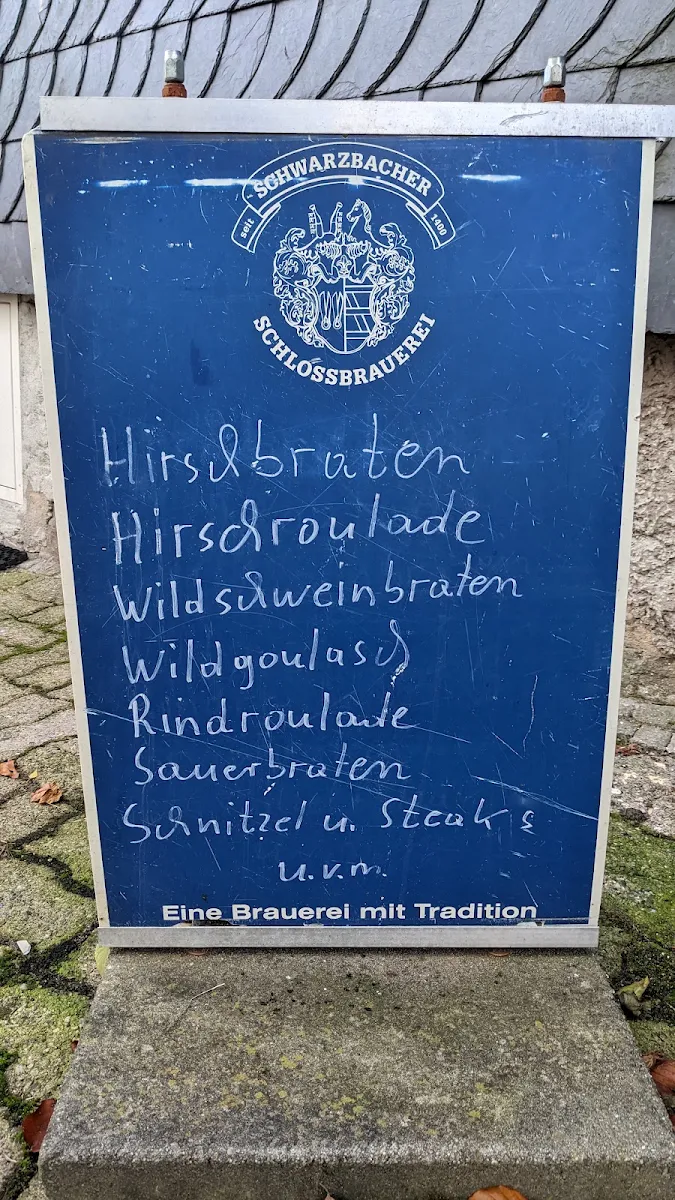 SCHWARZBACHER
seit 1400
SCHLOSSBRAUEREI
Hirschbraten
Hirschroulade
Wildschweinbraten
Wildgoulasch
Rindroulade
Sauerbraten
Schnitzel u. Steaks
u.v.m.
Eine Brauerei mit Tradition